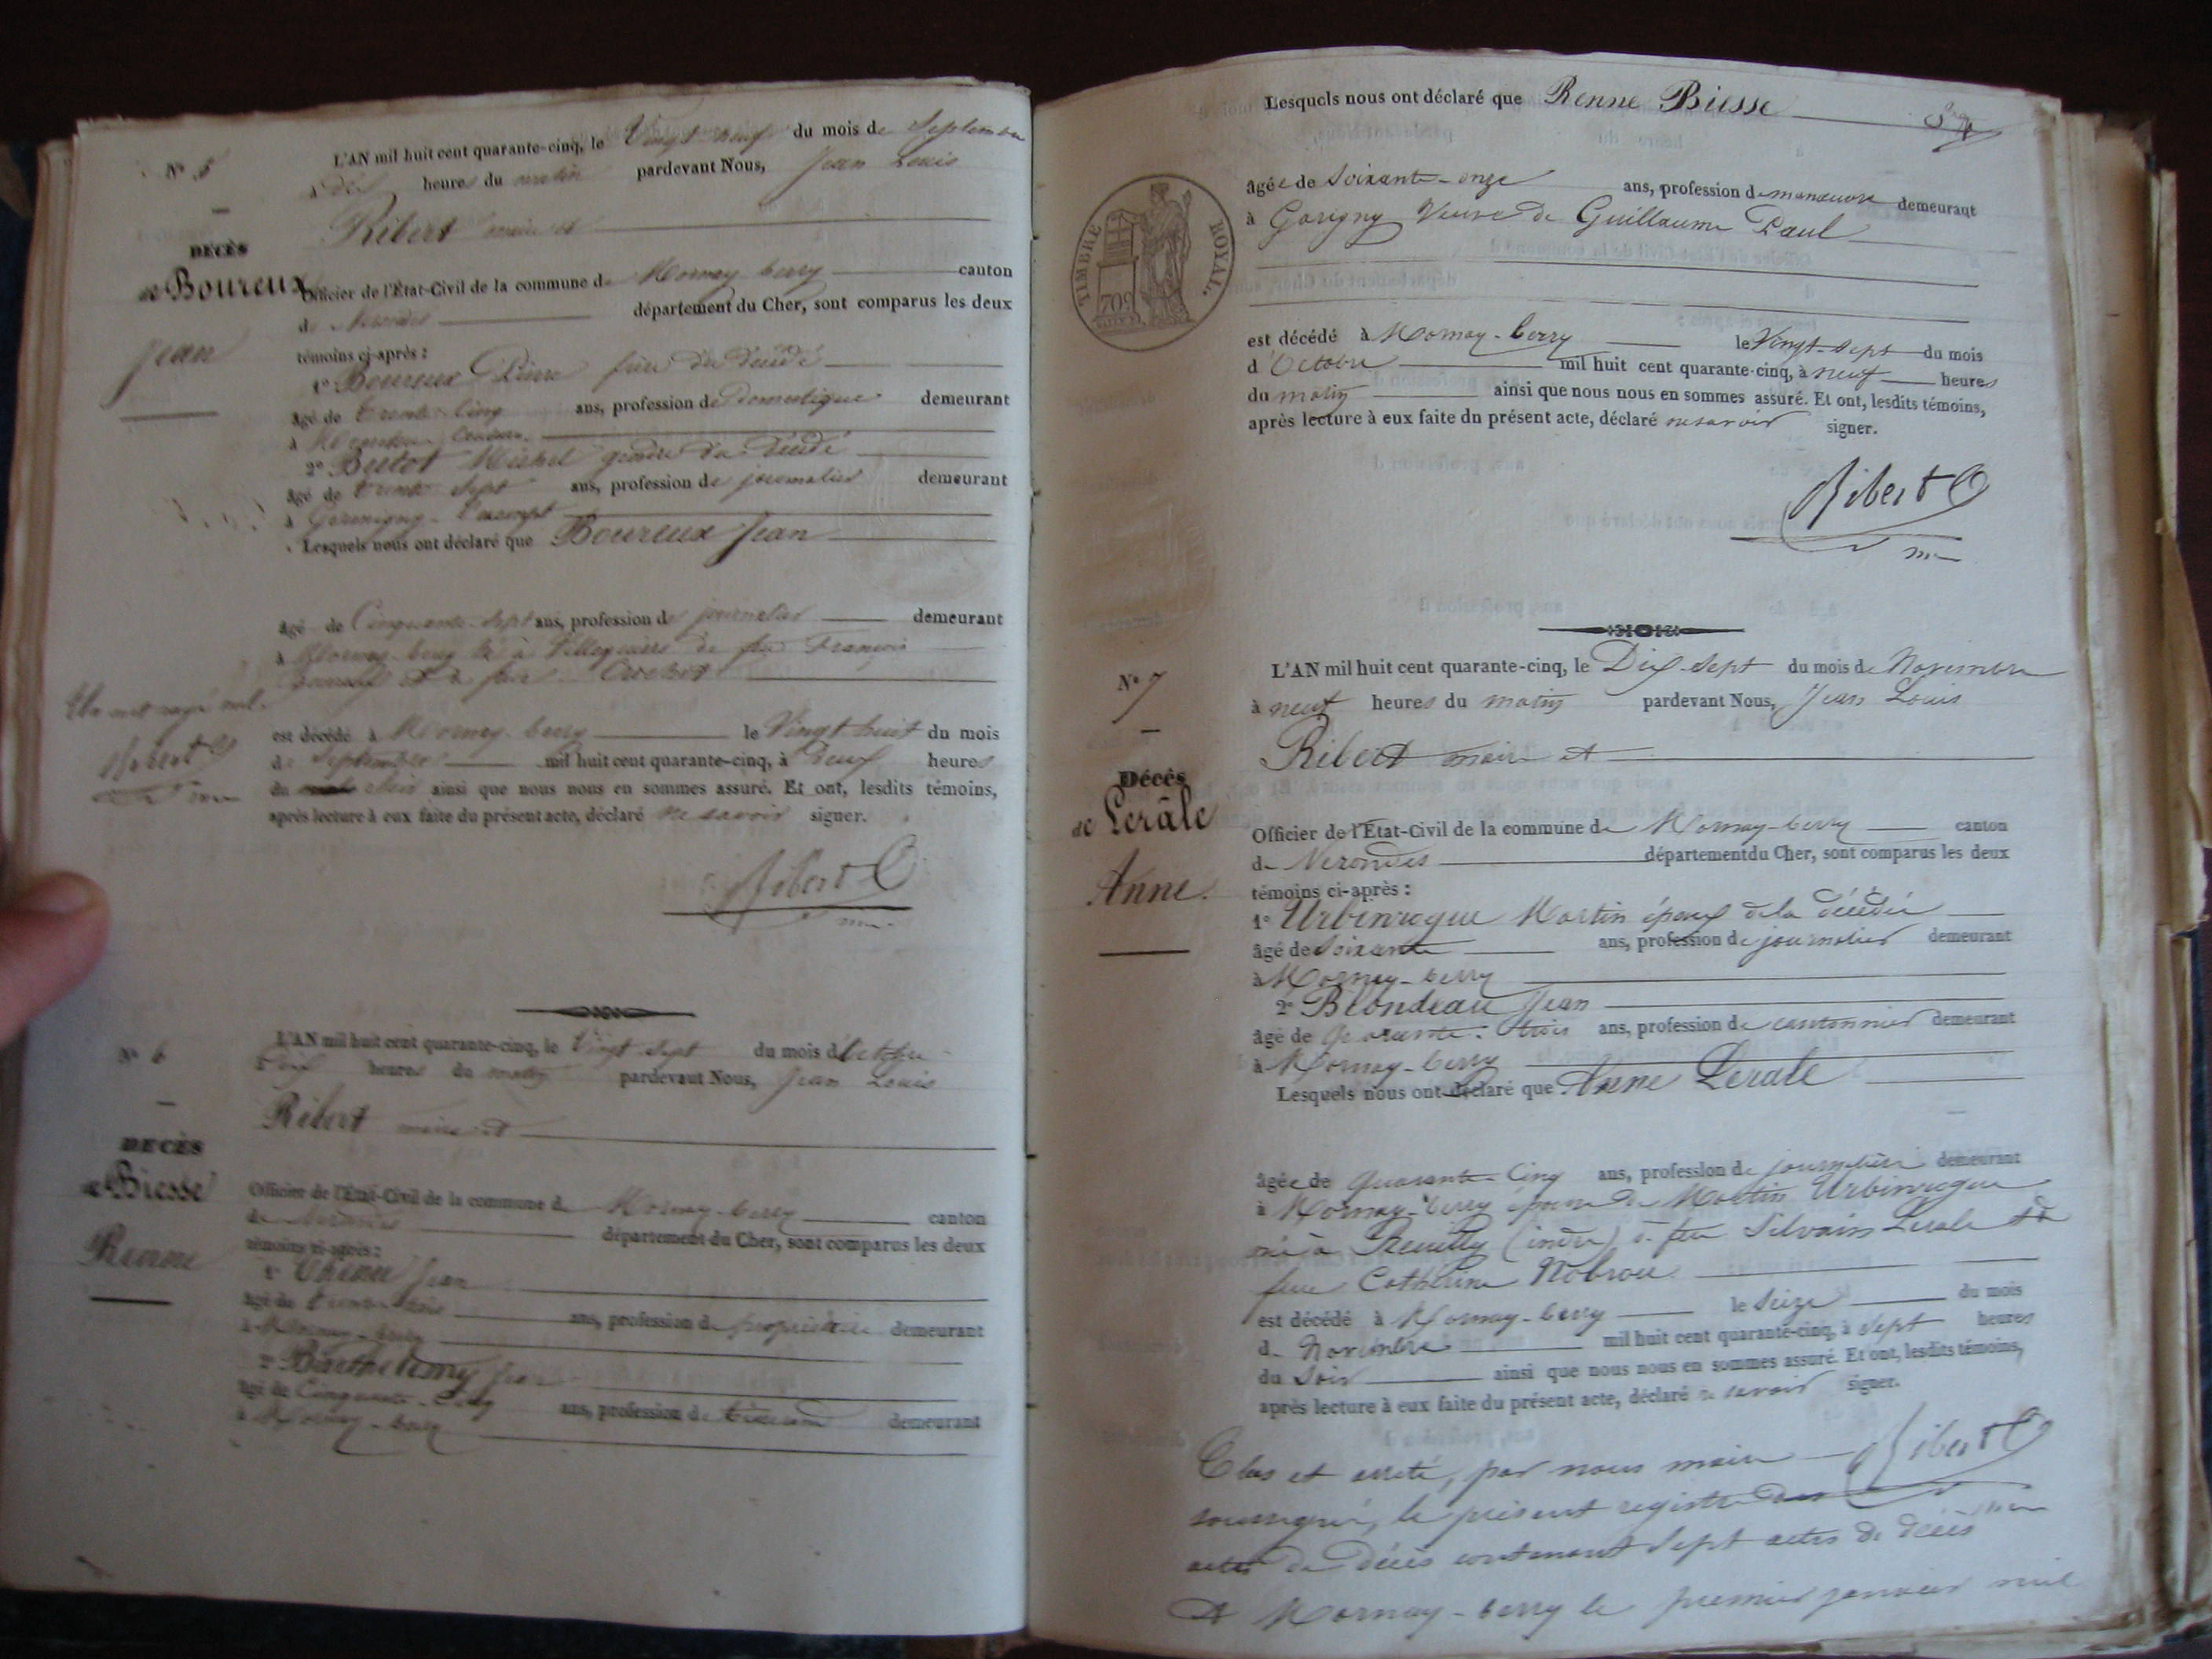 N° 5
DÉCÈS
de Boureux
Jean
L'AN mil huit cent quarante-cinq, le Vingt neuf du mois de Septembre
à dix heures du matin pardevant Nous, Jean Louis
Ribert maire et
Officier de l'État-Civil de la commune de Mornay-berry canton
de Nérondes département du Cher, sont comparus les deux
témoins ci-après :
1° Boureux Pierre frère du décédé
âgé de trente-Cinq ans, profession de domestique demeurant
à
2° Butot Michel gendre du décédé
âgé de trente Sept ans, profession de journalier demeurant
à Germigny-l'exempt
Lesquels nous ont déclaré que Boureux Jean
âgé de Cinquante-Sept ans, profession de journalier demeurant
à Mornay-berry né à Villequiers de feu François
Boureux et de feue Crochet
Un mot rayé nul.
Ribert
me
est décédé à Mornay berry le Vingt huit du mois
de Septembre mil huit cent quarante-cinq, à neuf heures
du soir ainsi que nous nous en sommes assuré. Et ont, lesdits témoins,
après lecture à eux faite du présent acte, déclaré ne savoir signer.
Ribert
me
N° 6
DÉCÈS
de Biesse
Renne
L'AN mil huit cent quarante-cinq, le Vingt Sept du mois d'Octobre
à dix heures du matin pardevant Nous, Jean Louis
Ribert maire et
Officier de l'État-Civil de la commune de Mornay-berry canton
de Nérondes département du Cher, sont comparus les deux
témoins ci-après :
1° Jean
âgé de trente-trois ans, profession de propriétaire demeurant
à Mornay-berry
2° Barthelemy Jean
âgé de Cinquante-Cinq ans, profession de tisserand demeurant
à Mornay-berry
Lesquels nous ont déclaré que Renne Biesse
TIMBRE ROYAL.
âgée de Soixante-onze ans, profession de manœuvre demeurant
à Garigny Veuve de Guillaume Paul
est décédé à Mornay-berry le Vingt-Sept du mois
d'Octobre mil huit cent quarante-cinq, à neuf heures
du matin ainsi que nous nous en sommes assuré. Et ont, lesdits témoins,
après lecture à eux faite du présent acte, déclaré ne savoir signer.
Ribert
me
N° 7
Décès
de Lerâle
Anne.
L'AN mil huit cent quarante-cinq, le Dix-Sept du mois de Novembre
à neuf heures du matin pardevant Nous, Jean Louis
Ribert maire et
Officier de l'État-Civil de la commune de Mornay-berry canton
de Nerondes département du Cher, sont comparus les deux
témoins ci-après :
1° Martin époux de la décédée
âgé de Soixante ans, profession de journalier demeurant
à Mornay-berry
2° Blondeau Jean
âgé de quarante-trois ans, profession de cantonnier demeurant
à Mornay-berry
Lesquels nous ont déclaré que Anne Lerale
âgée de quarante-Cinq ans, profession de journalière demeurant
à Mornay-berry épouse de Martin
née à Reuilly (indre) de feu Silvain Lerale et de
feue Catherine
est décédé à Mornay-berry le Seize du mois
de Novembre mil huit cent quarante-cinq, à Sept heures
du Soir ainsi que nous nous en sommes assuré. Et ont, lesdits témoins,
après lecture à eux faite du présent acte, déclaré ne savoir signer.
Ribert
me
Clos et arrêté, par nous maire
soussigné, le présent registre des
actes de décès contenant Sept actes de décès
A Mornay-berry le premier janvier mil